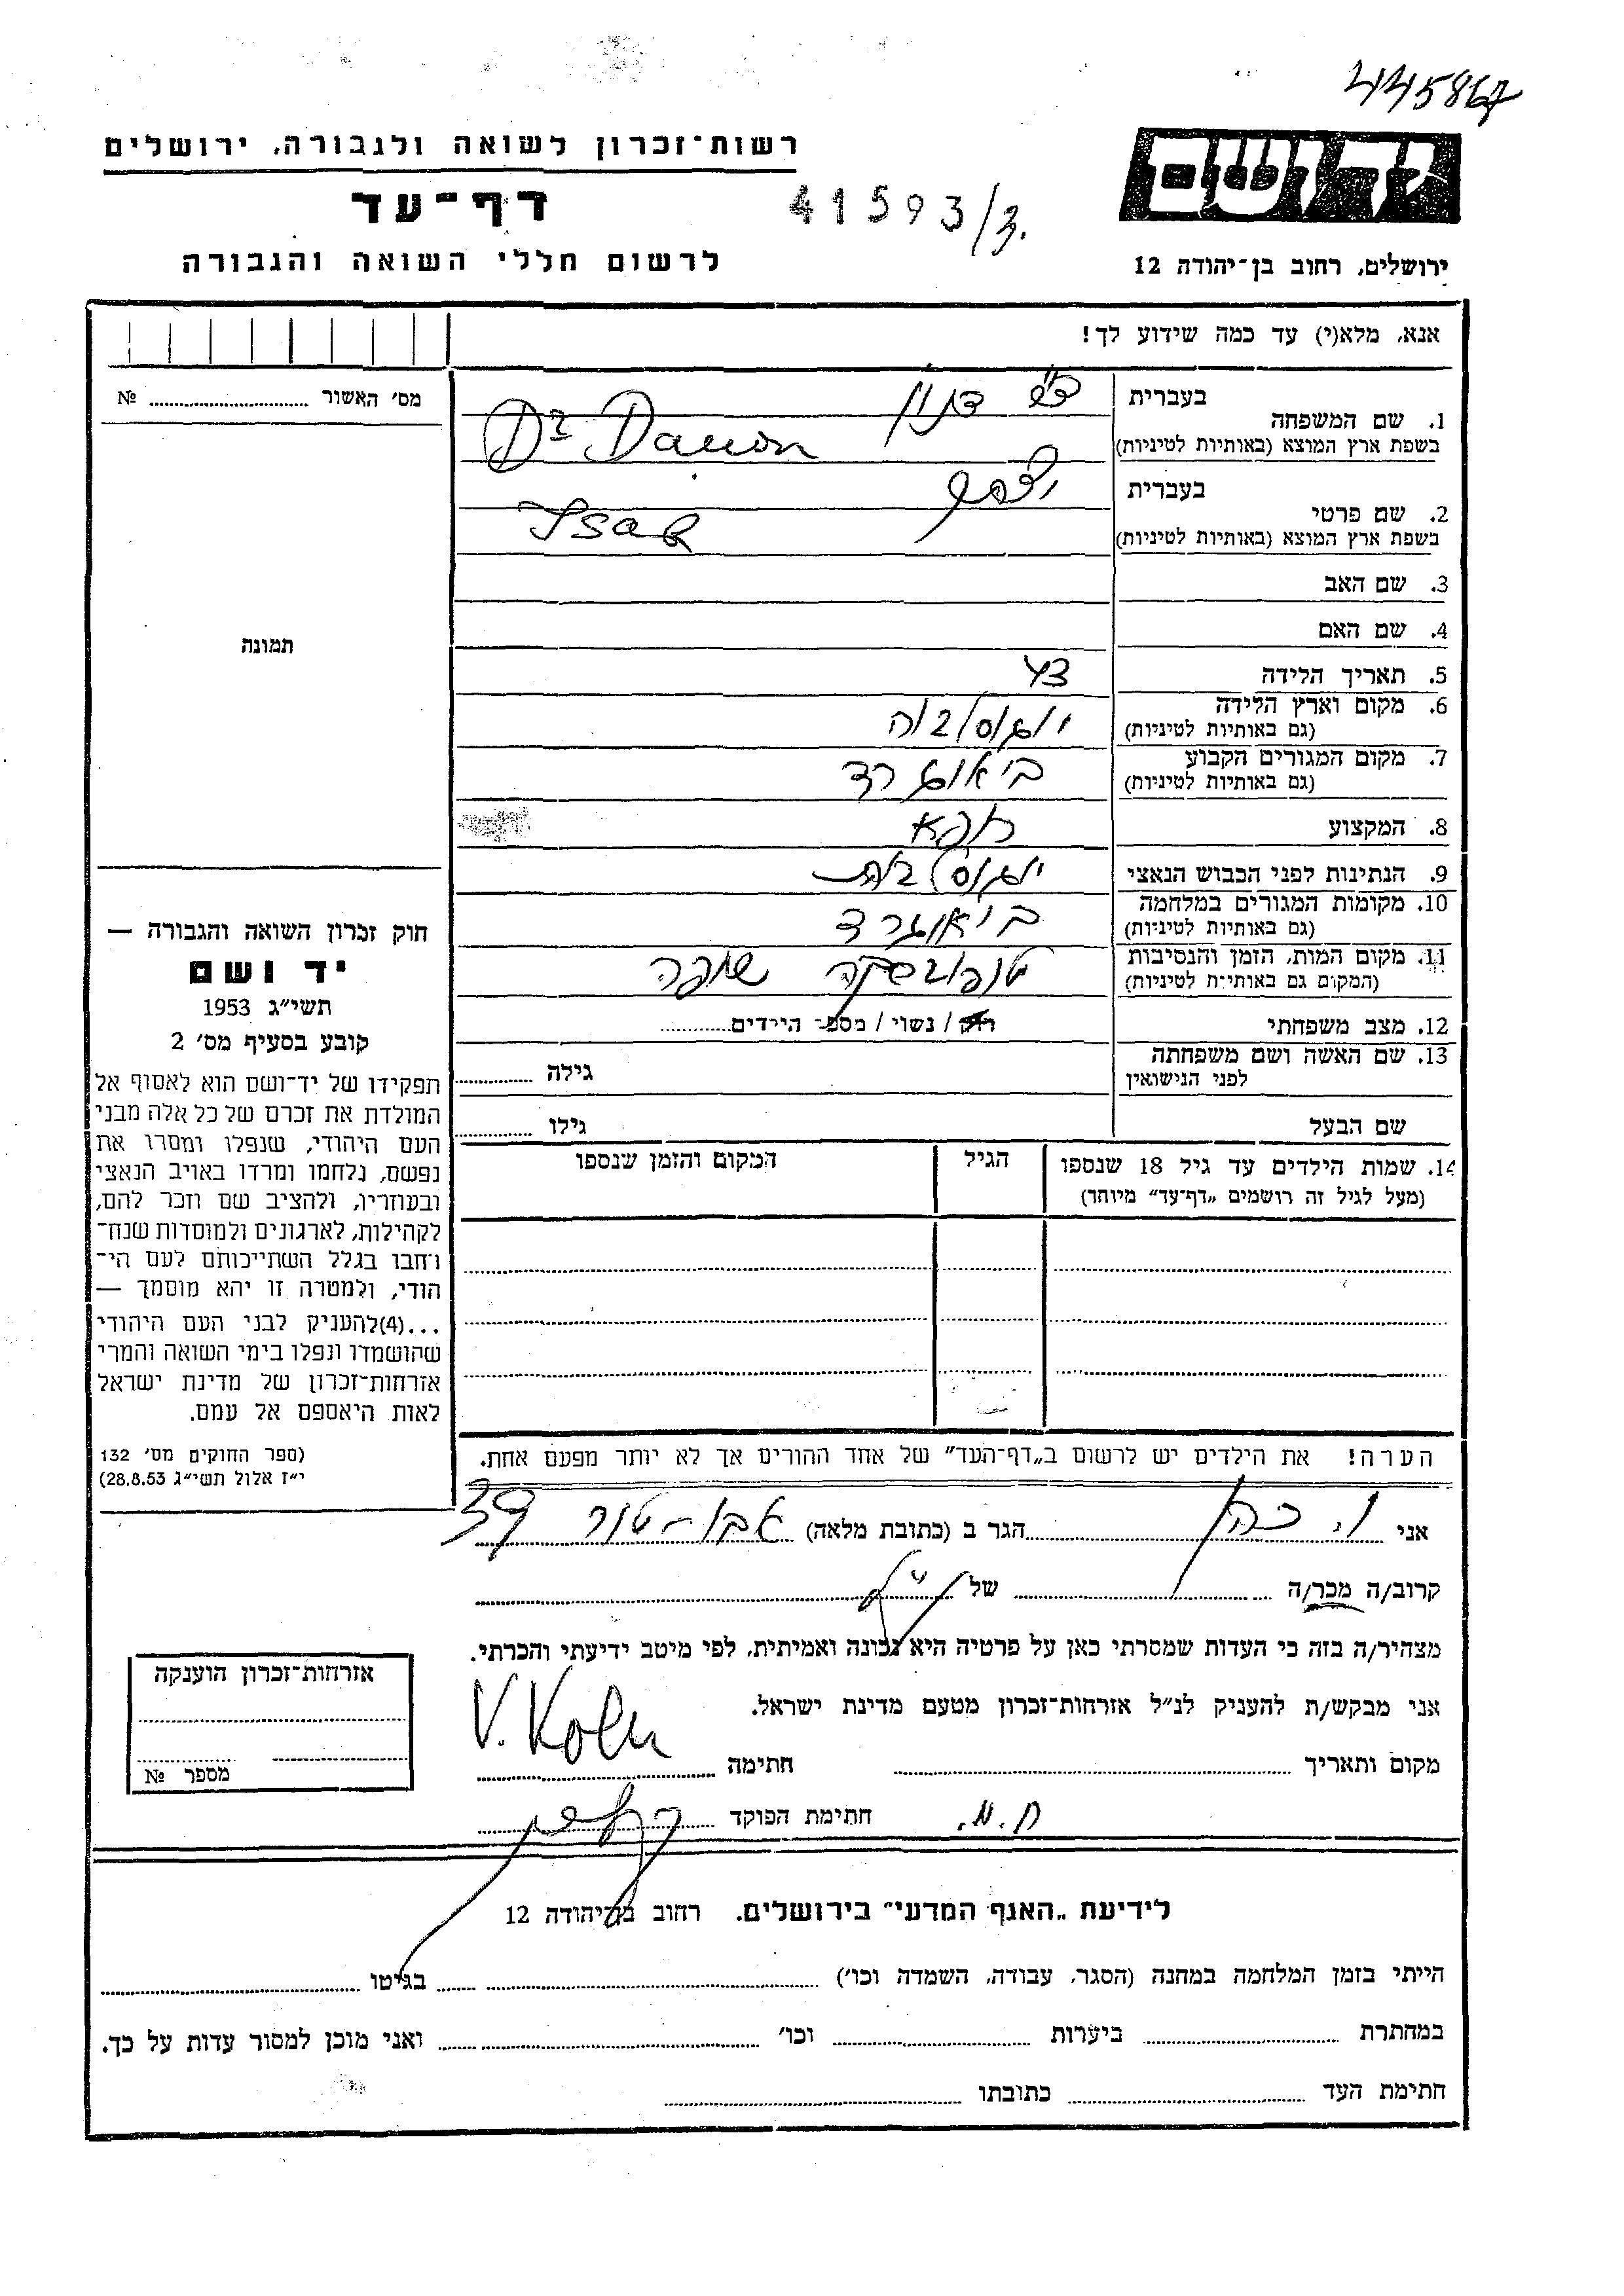 445867
רשות־זכרון לשואה ולגבורה, ירושלים
דף־עד
41593/3.
לרשום חללי השואה והגבורה
יד ושם
ירושלים, רחוב בן־יהודה 12
אנא, מלא(י) עד כמה שידוע לך!
מס׳ האשור ........ №
תמונה
חוק זכרון השואה והגבורה —
יד ושם
תשי״ג 1953
קובע בסעיף מס׳ 2
תפקידו של יד־ושם הוא לאסוף אל
המולדת את זכרם של כל אלה מבני
העם היהודי, שנפלו ומסרו את
נפשם, נלחמו ומרדו באויב הנאצי
ובעוזריו, ולהציב שם וזכר להם,
לקהילות, לארגונים ולמוסדות שנח־
רחבו בגלל השתייכותם לעם הי־
הודי, ולמטרה זו יהא מוסמך —
...(4)להעניק לבני העם היהודי
שהושמדו ונפלו בימי השואה והמרי
אזרחות־זכרון של מדינת ישראל
לאות היאספם אל עמם.
(ספר החוקים מס׳ 132
י״ז אלול תשי״ג 28.8.53)
1. שם המשפחה
בעברית ד״ר דנון
בשפת ארץ המוצא (באותיות לטיניות) Dr Danon
2. שם פרטי
בעברית יצחק
בשפת ארץ המוצא (באותיות לטיניות) Isak
3. שם האב
4. שם האם
5. תאריך הלידה 43
6. מקום וארץ הלידה יוגוסלביה
(גם באותיות לטיניות)
7. מקום המגורים הקבוע ביאוגרד
(גם באותיות לטיניות)
8. המקצוע רופא
9. הנתינות לפני הכבוש הנאצי יוגוסלבית
10. מקומות המגורים במלחמה ביאוגרד
(גם באותיות לטיניות)
11. מקום המות, הזמן והנסיבות טופובסקה שופה
(המקום גם באותיות לטיניות)
12. מצב משפחתי רוק / נשוי / מספר הילדים........
13. שם האשה ושם משפחתה
לפני הנישואין גילה ........
שם הבעל גילו ........
14. שמות הילדים עד גיל 18 שנספו
(מעל לגיל זה רושמים „דף־עד״ מיוחד)
הגיל
המקום והזמן שנספו
הערה! את הילדים יש לרשום ב„דף־העד״ של אחד ההורים אך לא יותר מפעם אחת.
אני ו. כהן הגר ב (כתובת מלאה) אבו-טור 39
קרוב/ה מכר/ה ........ של הנ״ל
מצהיר/ה בזה כי העדות שמסרתי כאן על פרטיה היא נכונה ואמיתית, לפי מיטב ידיעתי והכרתי.
אני מבקש/ת להעניק לנ״ל אזרחות־זכרון מטעם מדינת ישראל.
מקום ותאריך ........ חתימה V. Kohn
ח.מ. חתימת הפוקד
אזרחות־זכרון הוענקה
מספר №
לידיעת „האגף המדעי״ בירושלים. רחוב בן־יהודה 12
הייתי בזמן המלחמה במחנה (הסגר, עבודה, השמדה וכו׳) ........ בגיטו ........
במחתרת ........ ביערות ........ וכו׳ ........ ואני מוכן למסור עדות על כך.
חתימת העד ........ כתובתו ........